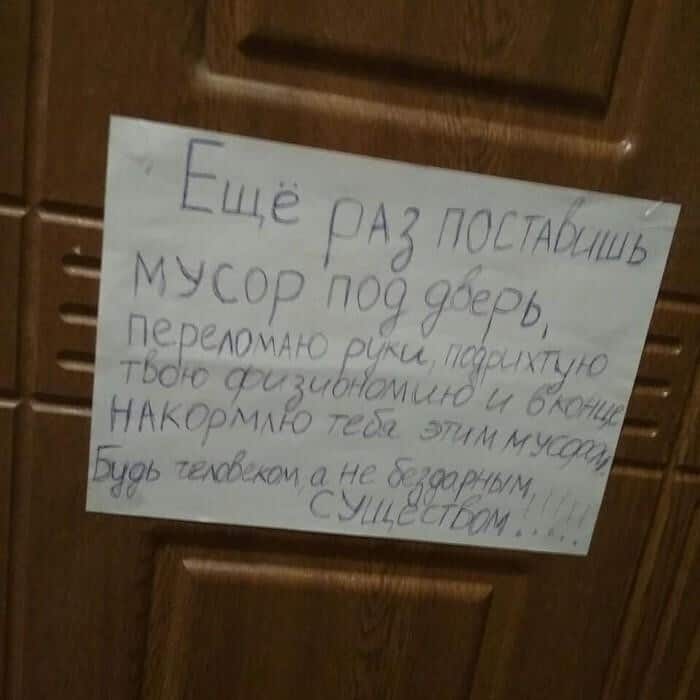 Ещё раз поставишь
мусор под дверь,
переломаю руки, подрихтую
твою физиономию и в конце
накормлю тебя этим мусором
Будь человеком, а не бездарным
существом.....!!!!!